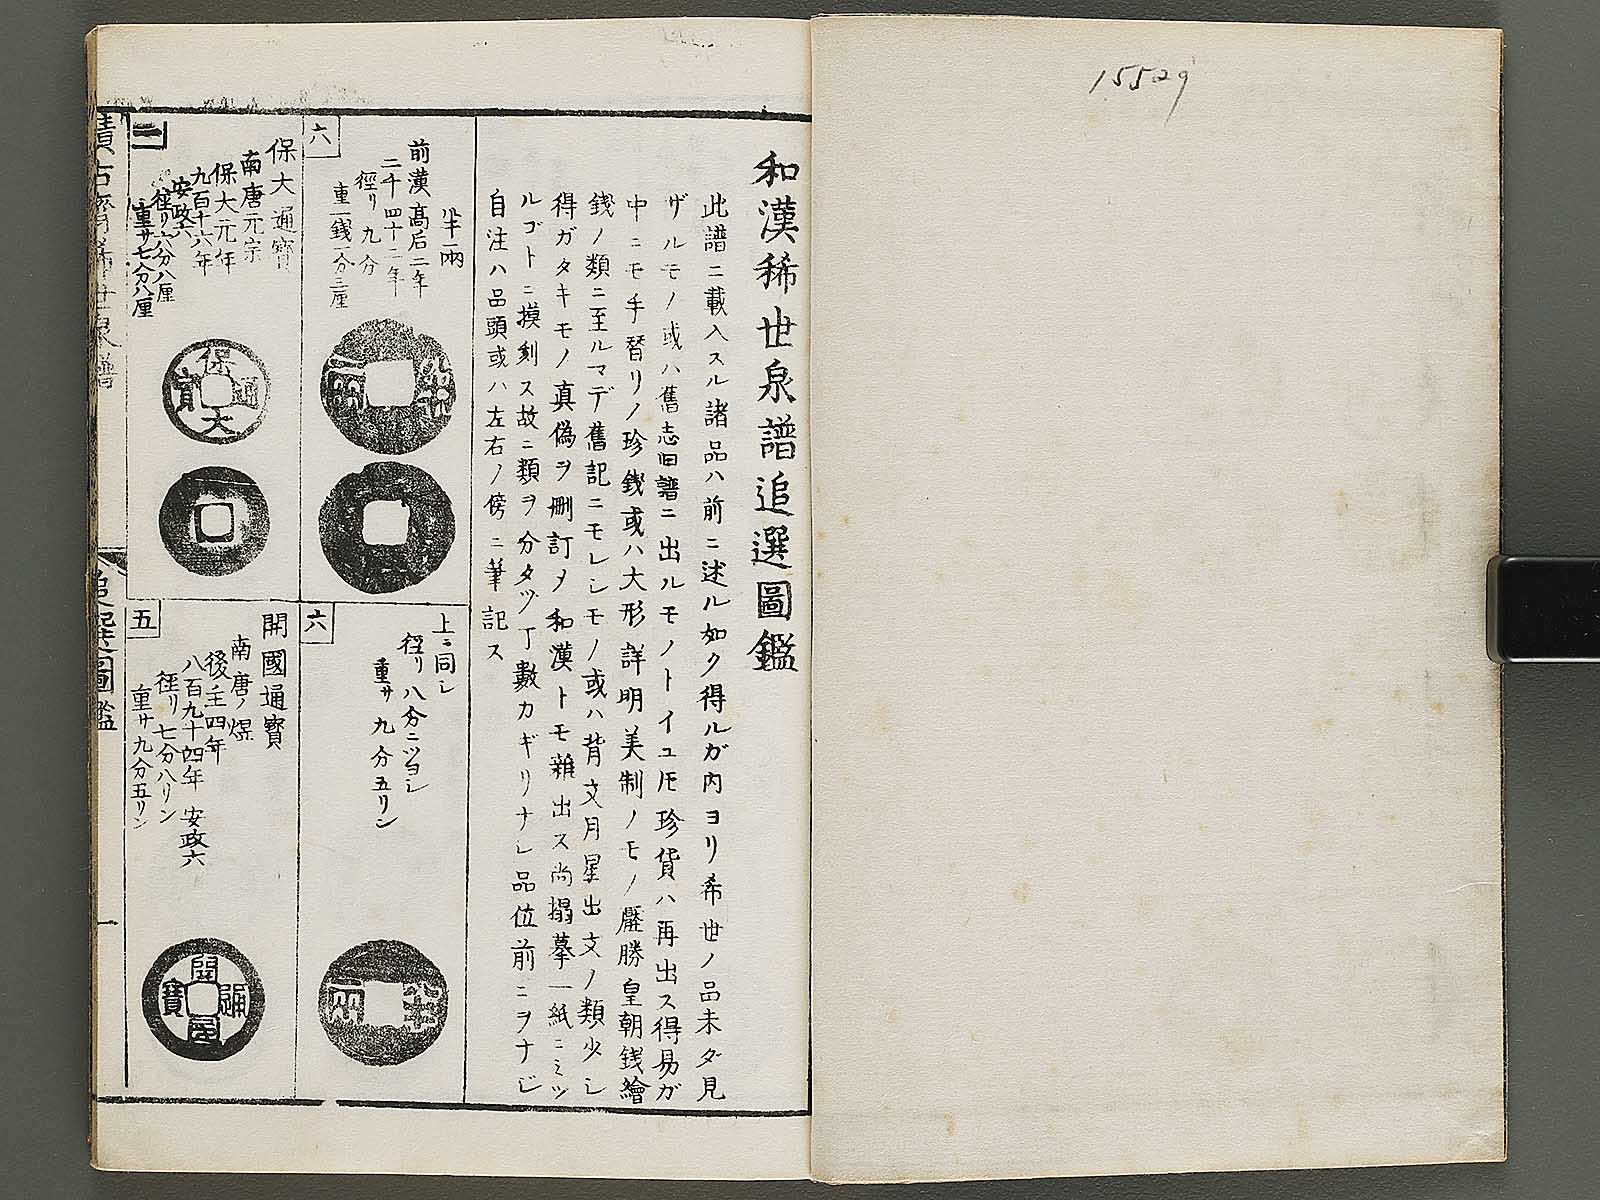 15529
和漢稀世泉譜追選圖鑑
此譜ニ載入スル諸品ハ前ニ述ル如ク得ルガ内ヨリ希世ノ品未ダ見
ザルモノ或ハ舊志旧譜ニ出ルモノトイヱ𪜈珍貨ハ再出ス得易ガ
中ニモ手替リノ珍銭或ハ大形詳明美制ノモノ厭勝皇朝銭繪
銭ノ類ニ至ルマデ舊記ニモレシモノ或ハ背文月星出文ノ類少シ
得ガタキモノ真偽ヲ刪訂〆和漢トモ雜出ス尚搨摹一紙ニミツ
ルゴトニ摸刻ス故ニ類ヲ分タヅ丁數カギリナレ品位前ニヲナジ
自注ハ品頭或ハ左右ノ傍ニ筆記ス
六
半両
前漢髙后二年
二千四十二年
徑リ九分
重一銭一分三厘
半
両
六
上ニ同シ
徑リ八分ニツヨシ
重サ九分五リン
半
両
二
保大通寳
南唐元宗
保大元年
九百十六年
安政六
徑リ六分八厘
重サ七分八厘
保大通寳
五
開國通寳
南唐ノ煜
後主四年
八百九十四年 安政六
徑リ七分八リン
重サ九分五リン
開國通寳
稀世泉譜
追選圖鑑
一